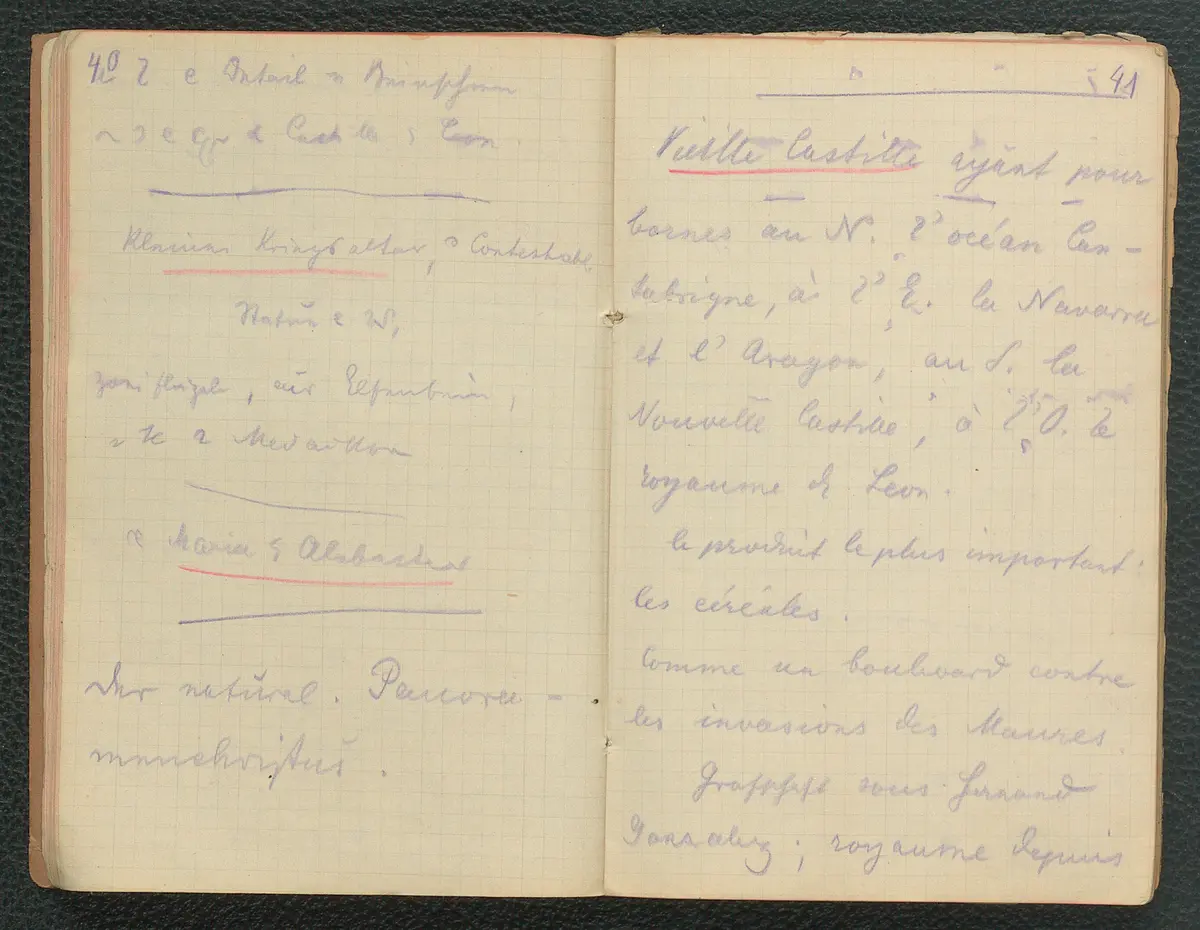 40
Detail
Castille Leon.
Kleiner Kriegsaltar, Contestabl.
Statue
zweiflügel, aus Elfenbein,
Medaillon
Maria Alabaster
Der natural. Panora-
menchristus.
41
Vieille Castille ayant pour
bornes au N. l'océan Can-
tabrique, à l'E. la Navarre
et l'Aragon, au S. la
Nouvelle Castille, à l'O. le
royaume de Leon.
le produit le plus important:
les céréales.
Comme un boulevard contre
les invasions des Maures.
Grafschaft sous Fernand
Gonzalez; royaume depuis